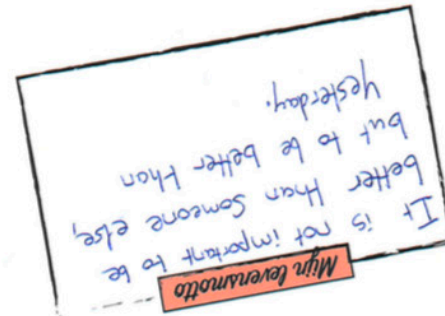 Mijn levensmotto
It is not important to be
better than someone else,
but to be better than
yesterday.